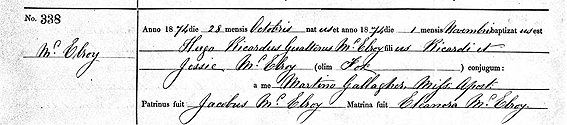 No. 338
Mc Elroy
Anno 1874 die 28 mensis Octobris nat us et 1874 die 1 mensis Novembri baptizat us est
Hugo Ricardus Gualterus Mc Elroy fili us Ricardi et
Jessie Mc Elroy (olim Fox) conjugum:
a me Martino Gallagher, Miss. Apost.
Patrinus fuit Jacobus Mc Elroy Matrina fuit Eleanora Mc Elroy